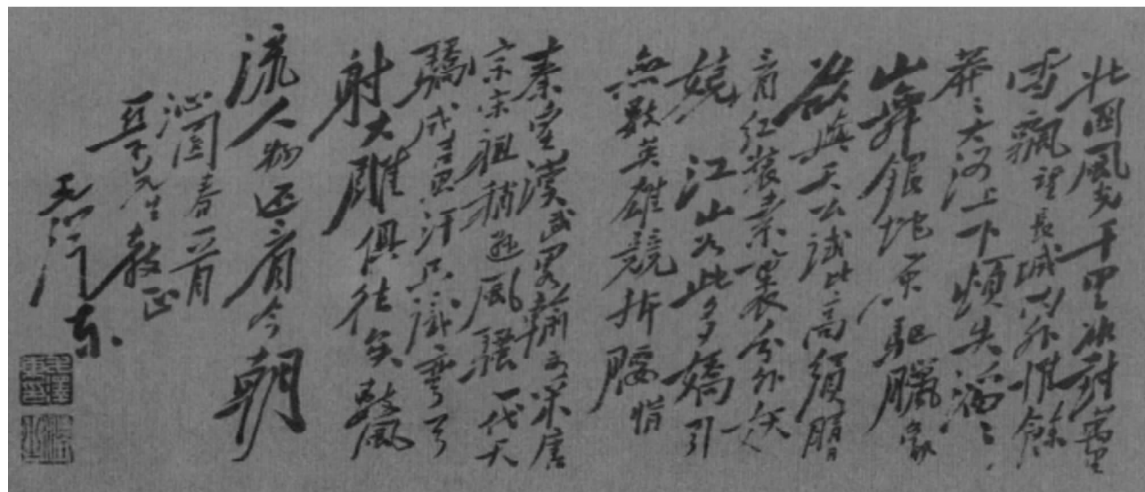 北國風光千里冰封萬里
雪飄望長城內外惟餘
莽〻大河上下頓失滔〻
山舞銀蛇原驅臘象
欲與天公試比高須晴
看紅裝素裹分外妖
嬈 江山如此多嬌引
無數英雄競折腰惜
秦皇漢武略輸文采唐
宗宋祖稍遜風騷一代天
驕成吉思汗只識彎弓
射大雕俱往矣數風
流人物还看今朝
沁園春一首
亞子先生教正
毛澤東
毛澤東印
潤之